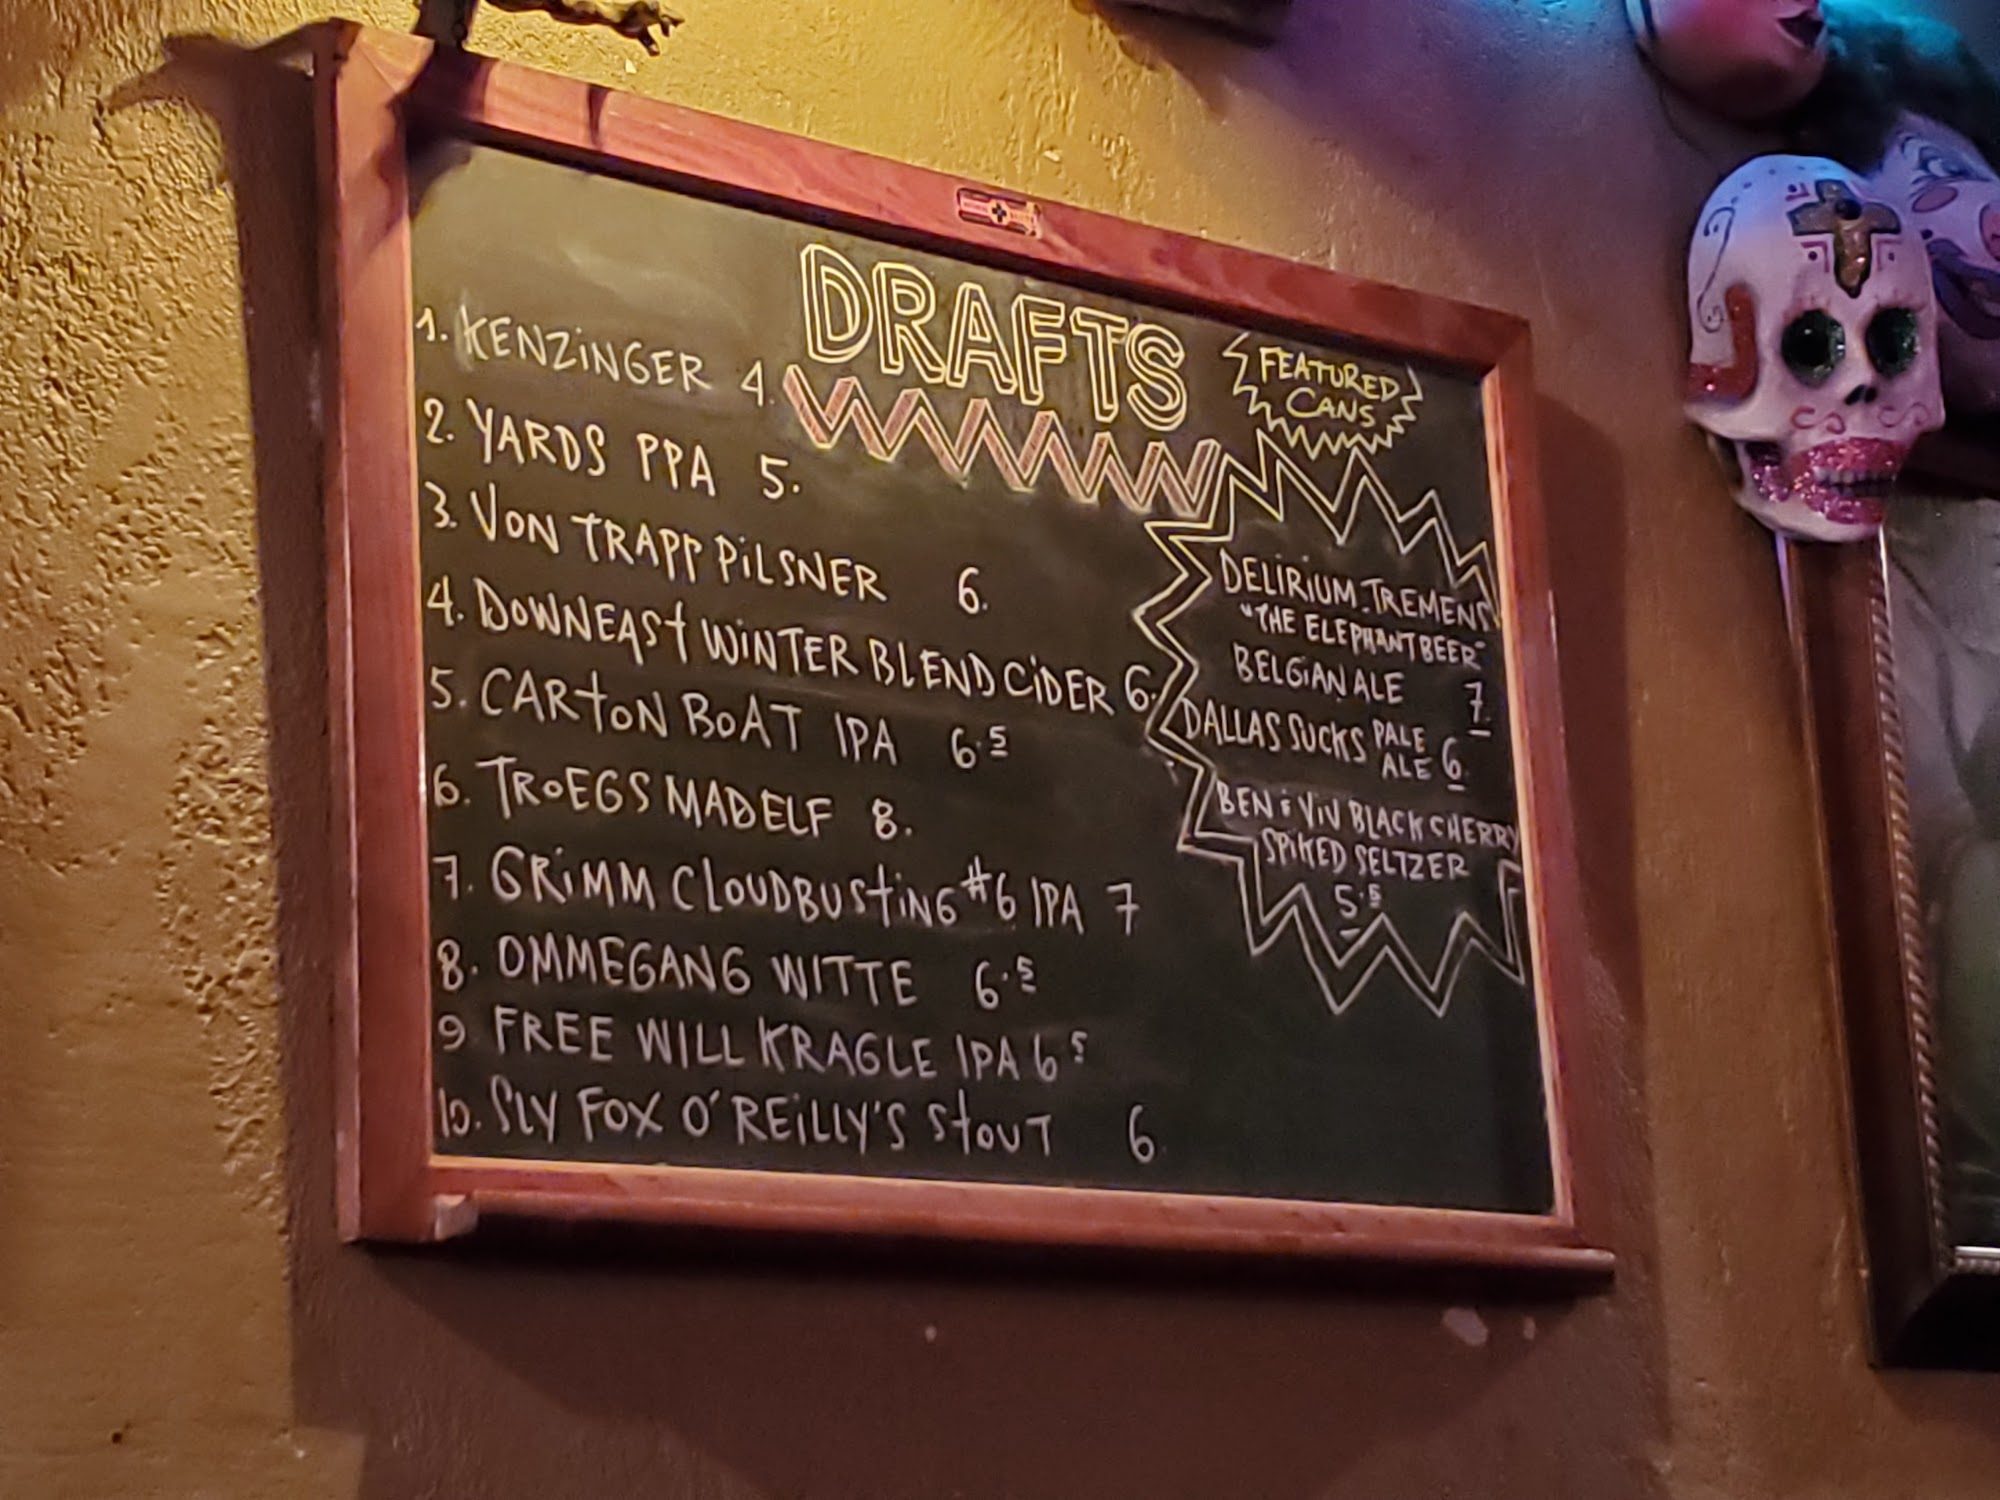 DRAFTS
1. KENZINGER 4.
2. YARDS PPA 5.
3. VON TRAPP PILSNER 6.
4. DOWNEAST WINTER BLEND CIDER 6.
5. CARTON BOAT IPA 6.5
6. TROEGS MAD ELF 8.
7. GRIMM CLOUDBUSTING #6 IPA 7
8. OMMEGANG WITTE 6.5
9 FREE WILL KRAGLE IPA 6 5
10. SLY FOX O'REILLY'S STOUT 6.
FEATURED
CANS
DELIRIUM TREMENS
"THE ELEPHANT BEER"
BELGIAN ALE 7
DALLAS SUCKS PALE ALE 6.
BEN & VIV BLACK CHERRY
SPIKED SELTZER
5.5